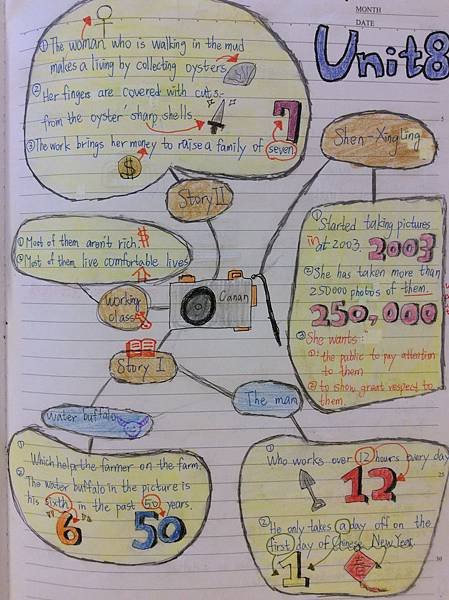 MONTH
DATE
Unit8
① The woman who is walking in the mud
makes a living by collecting oysters
② Her fingers are covered with cuts
from the oyster' sharp shells
③ The work brings her money to raise a family of seven
7
$
Story II
Shen-Xingling
① Started taking pictures
in at 2003. 2003
② She has taken more than
250000 photos of them.
250,000
③ She wants:
①: the public to pay attention
to them
② to show great respect to
them.
① Most of them aren't rich. $
② Most of them live comfortable lives
Working
class
Canan
Story I
Water buffalo
The man
① Which help the farmer on the farm.
② The water buffalo in the picture is
his sixth in the past 50 years.
6 50
① Who works over 12 hours every day
12
② He only takes a day off on the
first day of Chinese New Year.
1 春
5
25
30